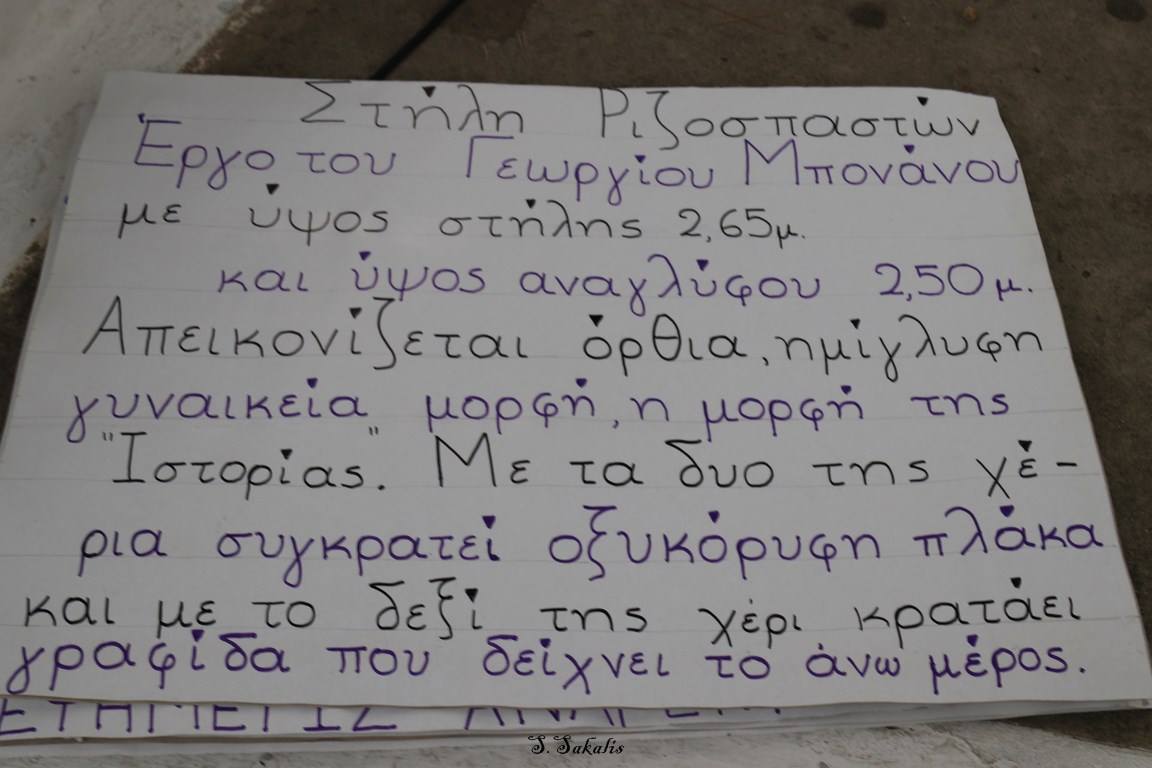 Στήλη Ριζοσπαστών
Έργο του Γεωργίου Μπονάνου
με ύψος στήλης 2,65μ.
και ύψος αναγλύφου 2,50μ.
Απεικονίζεται όρθια, ημίγλυφη
γυναικεία μορφή, η μορφή της
"Ιστορίας." Με τα δυο της χέ-
ρια συγκρατεί οξυκόρυφη πλάκα
και με το δεξί της χέρι κρατάει
γραφίδα που δείχνει το άνω μέρος.
S. Sakalis